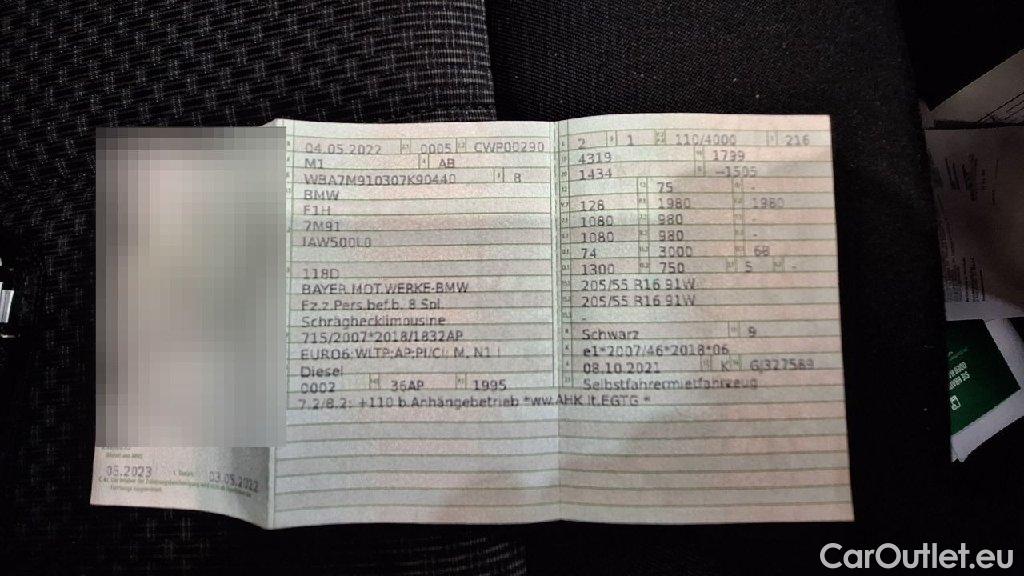 04.05.2022 0005 CWP00290
M1 AB
WBA7M910307K90440 8
BMW
F1H
7M91
118D
BAYER.MOT.WERKE-BMW
Fz.z.Pers.bef.b. 8 Spl
Schräghecklimousine
715/2007*2018/1832AP
EURO6;WLTP;AP;PI/CI; M, N1 I
Diesel
0002 36AP 1995
7.2/8.2: +110 b.Anhängebetrieb *ww.AHK lt.EGTG *
2 1 110/4000 216
4319 1799
1434 -1505
75 -
128 1980 1980
1080 980 -
1080 980 -
74 3000 68
1300 750 5 -
205/55 R16 91W
205/55 R16 91W
-
Schwarz 9
e1*2007/46*2018*06
08.10.2021 K GJ327589
Selbstfahrermietfahrzeug
05.2023
03.05.2022
CarOutlet.eu